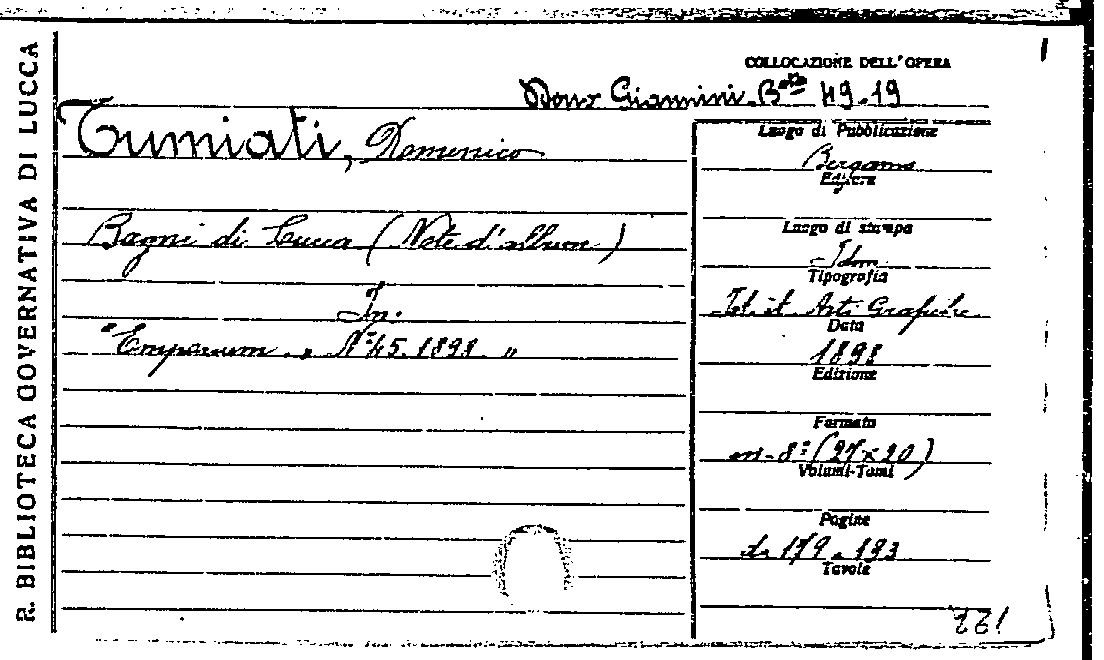 R. BIBLIOTECA GOVERNATIVA DI LUCCA
COLLOCAZIONE DELL'OPERA
Dono Giannini. B.ta 49.19
Tumiati, Domenico
Bagni di Lucca (Note d'album)
In:
"Emporium" N° 45. 1898 "
Luogo di Pubblicazione
Bergamo
Editore
Luogo di stampa
Idm.
Tipografia
Ist. it. Arti Grafiche
Data
1898
Edizione
Formato
in-8° (27x20)
Volumi-Tomi
Pagine
179-193
Tavole